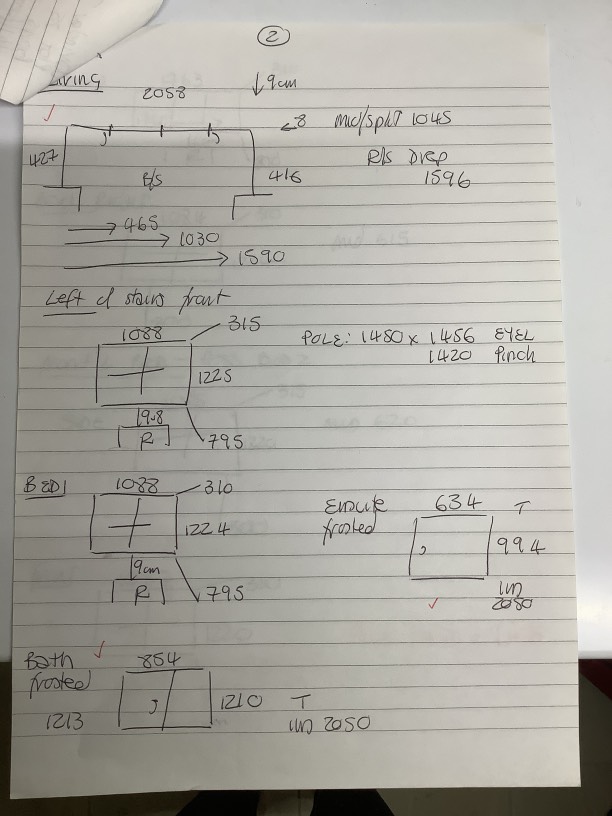 2
Living
2058
↓9cm
←8
mid/split 1045
427
B/S
416
R/s Drop
1596
→ 465
→ 1030
→ 1590
Left of stairs front
1088
315
1225
POLE: 1480 x 1456 EYEL
1420 Pinch
R
795
BED1
1088
310
1224
9cm
R
795
Ensuite
frosted
634
T
994
2050
Bath
frosted
854
1213
1210
T
2050